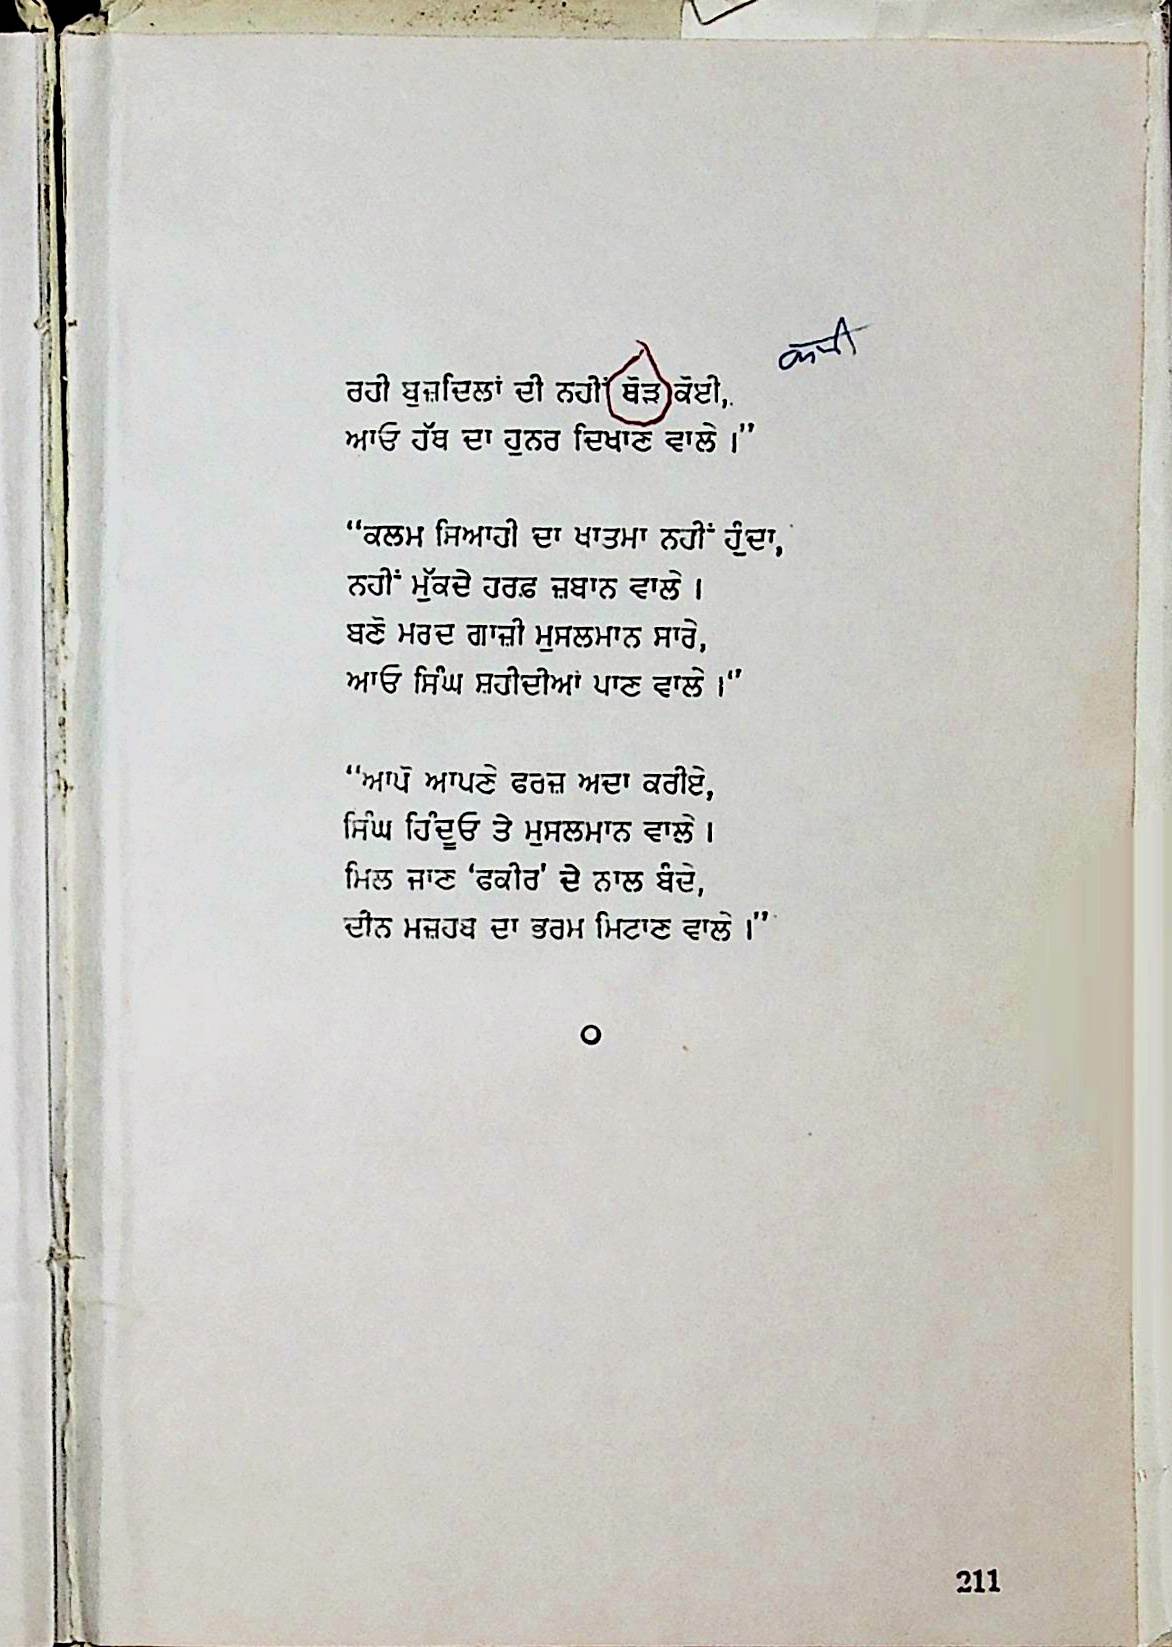 ਰਹੀ ਬੁਜ਼ਦਿਲਾਂ ਦੀ ਨਹੀਂ ਥੋੜ ਕੋਈ,
ਆਓ ਹੱਥ ਦਾ ਹੁਨਰ ਦਿਖਾਣ ਵਾਲੇ ।”
“ਕਲਮ ਸਿਆਹੀ ਦਾ ਖਾਤਮਾ ਨਹੀਂ ਹੁੰਦਾ,
ਨਹੀਂ ਮੁੱਕਦੇ ਹਰਫ਼ ਜ਼ਬਾਨ ਵਾਲੇ ।
ਬਣੋ ਮਰਦ ਗਾਜ਼ੀ ਮੁਸਲਮਾਨ ਸਾਰੇ,
ਆਓ ਸਿੰਘ ਸ਼ਹੀਦੀਆਂ ਪਾਣ ਵਾਲੇ ।”
“ਆਪੋ ਆਪਣੇ ਫਰਜ਼ ਅਦਾ ਕਰੀਏ,
ਸਿੰਘ ਹਿੰਦੂਓ ਤੇ ਮੁਸਲਮਾਨ ਵਾਲੇ ।
ਮਿਲ ਜਾਣ ‘ਫਕੀਰ’ ਦੇ ਨਾਲ ਬੰਦੇ,
ਦੀਨ ਮਜ਼ਹਬ ਦਾ ਭਰਮ ਮਿਟਾਣ ਵਾਲੇ ।”
211